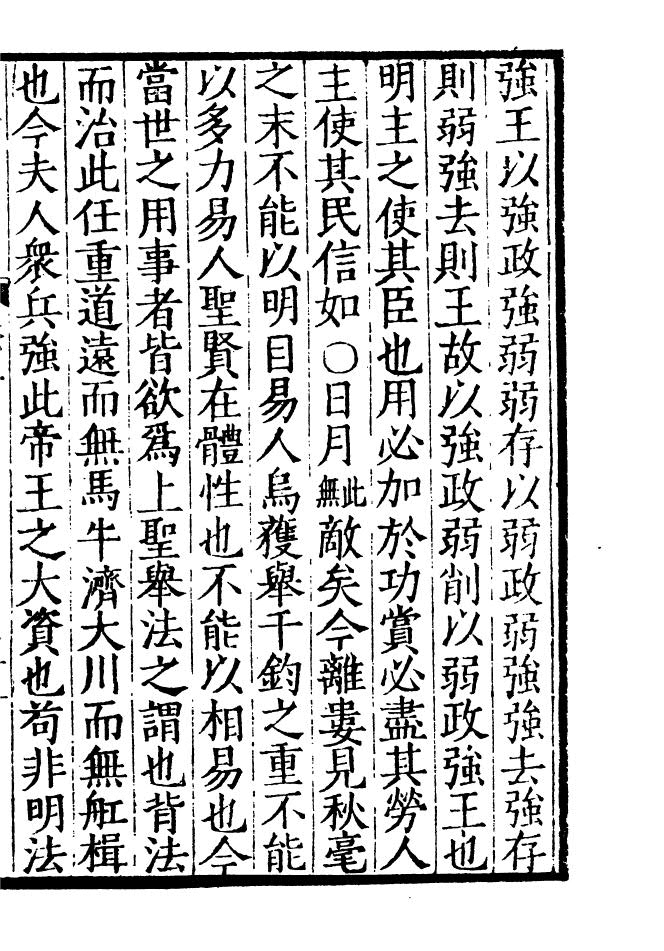 強王以強政強弱弱存以弱政弱強強去強存
則弱強去則王故以強政弱削以弱政強王也
明主之使其臣也用必加於功賞必盡其勞人
主使其民信如〇日月此無敵矣今離婁見秋毫
之末不能以明目易人烏獲舉千鈞之重不能
以多力易人聖賢在體性也不能以相易也今
當世之用事者皆欲爲上聖舉法之謂也背法
而治此任重道遠而無馬牛濟大川而無舡楫
也今夫人衆兵強此帝王之大資也茍非明法